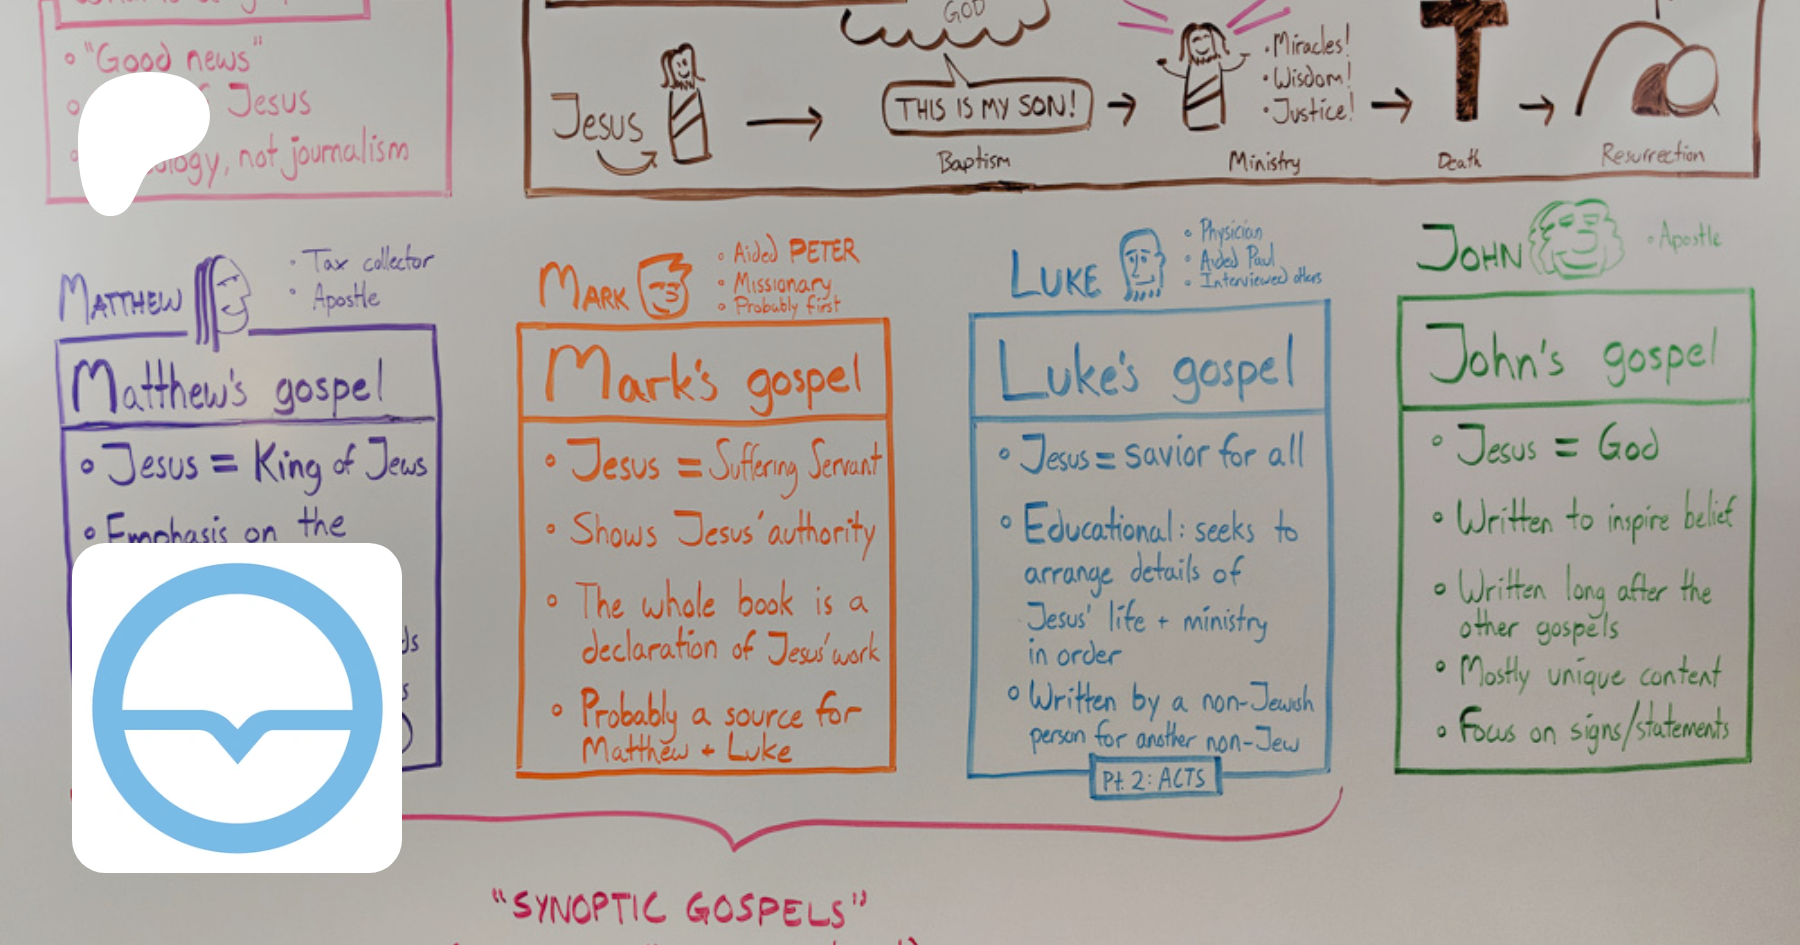 "Good news"
Jesus
not journalism
GOD
Jesus
THIS IS MY SON!
Baptism
• Miracles!
• Wisdom!
• Justice!
Ministry
Death
Resurrection
MATTHEW
• Tax collector
• Apostle
Matthew's gospel
• Jesus = King of Jews
• Emphasis on the
MARK
• Aided PETER
• Missionary
• Probably first
Mark's gospel
• Jesus = Suffering Servant
• Shows Jesus' authority
• The whole book is a
declaration of Jesus' work
• Probably a source for
Matthew + Luke
LUKE
• Physician
• Aided Paul
• Interviewed others
Luke's gospel
• Jesus = savior for all
• Educational: seeks to
arrange details of
Jesus' life + ministry
in order
• Written by a non-Jewish
person for another non-Jew
Pt. 2: ACTS
JOHN
• Apostle
John's gospel
• Jesus = God
• Written to inspire belief
• Written long after the
other gospels
• Mostly unique content
• Focus on signs/statements
"SYNOPTIC GOSPELS"